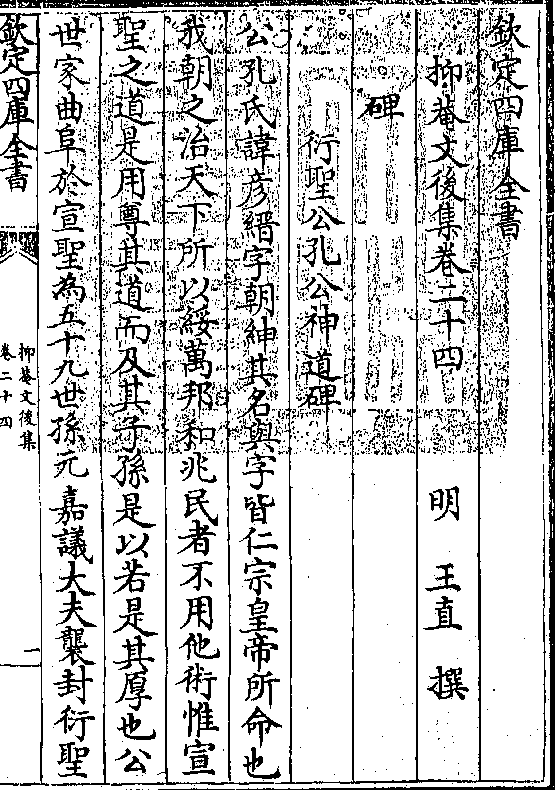 欽定四庫全書
抑菴文後集卷二十四
明　王直　撰
碑
衍聖公孔公神道碑
公孔氏諱彦縉字朝紳其名與字皆仁宗皇帝所命也
我朝之治天下所以綏萬邦和兆民者不用他術惟宣
聖之道是用尊其道而及其子孫是以若是其厚也公
世家曲阜於宣聖為五十九世孫元嘉議大夫襲封衍聖
欽定四庫全書
抑菴文後集
卷二十四
一